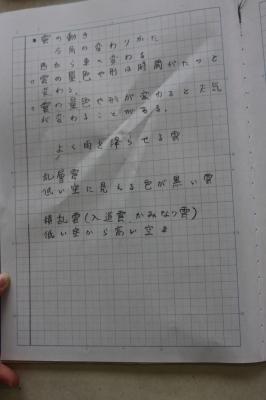 ・雲の動き
今角の変わりかた
西から東へ変わる
雲の量色や形は時間がたつと
変わる。
雲の量色や形が変わると天気
が変わることがある。
よく雨を降らせる雲
乱層雲
低い空に見える色が黒い雲
積乱雲(入道雲、かみなり雲)
低い空から高い空ま